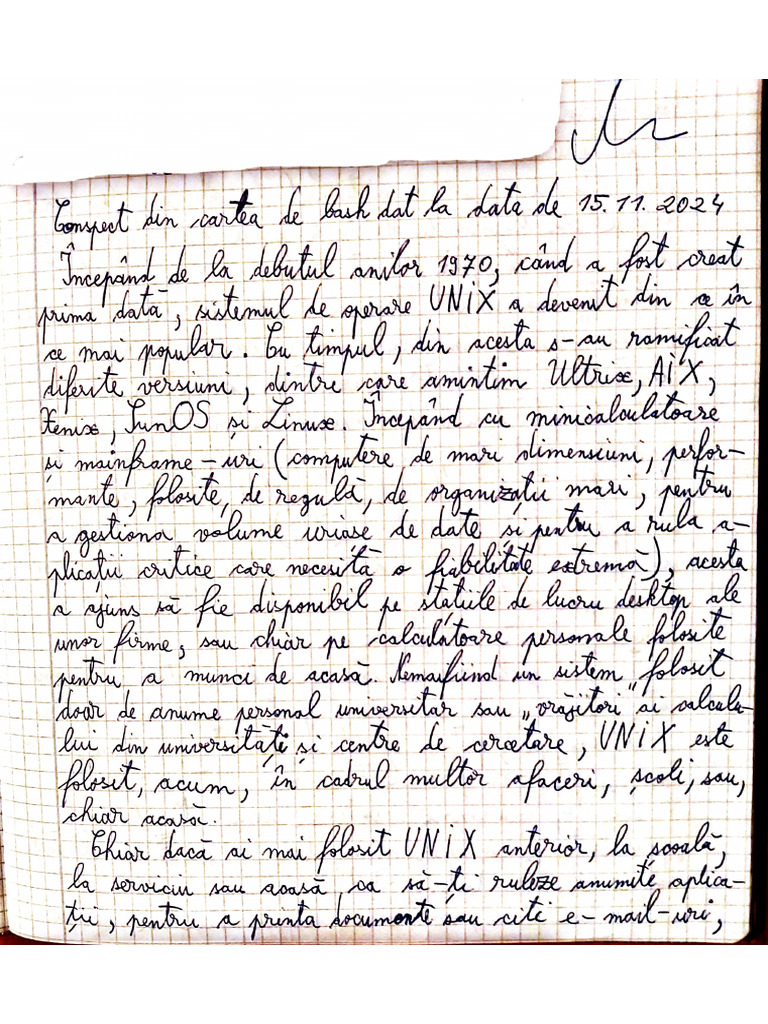 Conspect din cartea de bash dat la data de 15.11.2024
Începând de la debutul anilor 1970, când a fost creat
prima dată, sistemul de operare UNIX a devenit din ce în
ce mai popular. Cu timpul, din acesta s-au ramificat
diferite versiuni, dintre care amintim Ultrix, AIX,
Xenix, SunOS și Linux. Începând cu minicalculatoare
și mainframe-uri (computere de mari dimensiuni, perfor-
mante, folosite, de regulă, de organizații mari, pentru
a gestiona volume uriase de date si pentru a rula a-
plicații critice care necesită o fiabilitate extremă), acesta
a ajuns să fie disponibil pe stațiile de lucru desktop ale
unor firme, sau chiar pe calculatoare personale folosite
pentru a munci de acasă. Nemaifiind un sistem folosit
doar de anume personal universitar sau „vrăjitori" ai calculu-
lui din universități și centre de cercetare, UNIX este
folosit, acum, în cadrul multor afaceri, școli, sau,
chiar acasă.
Chiar dacă ai mai folosit UNIX anterior, la școală,
la serviciu sau acasă, ca să-ți ruleze anumite aplica-
ții, pentru a printa documente sau citi e-mail-uri,